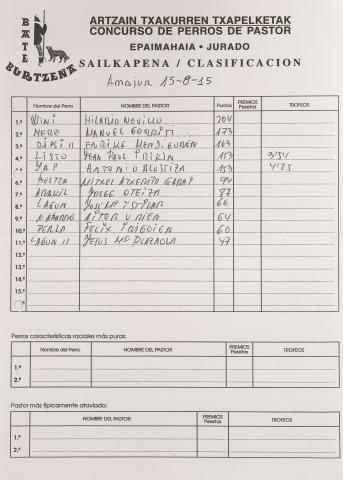 BATE
BURTZENA
ARTZAIN TXAKURREN TXAPELKETAK
CONCURSO DE PERROS DE PASTOR
EPAIMAHAIA • JURADO
SAILKAPENA / CLASIFICACION
Amaiur 15-8-15
Nombre del Perro NOMBRE DEL PASTOR Puntos PREMIOS Pesetas TROFEOS
1.º WINI HILARIO NOVILLO 204
2.º NERE MANUEL GORRITI 173
3.º DIKI II ENRIKE MENDIGUREN 163
4.º LISTO JEAN PAUL IRIKIN 153 3'54
5.º YAP ANTONIO ALUSTIZA 153 4'25
6.º BELTZA MITXEL ATXERITO GARAY 94
7.º ARAXIL JORGE OTEIZA 87
8.º LAGUN 66
9.º NABARRO AITOR URIEN 64
10.º PERLA FELIX IRIGOIEN 60
11.º LAGUN II JESUS Mª 47
12.º
13.º
14.º
15.º
Perros características raciales más puras:
Nombre del Perro NOMBRE DEL PASTOR PREMIOS Pesetas TROFEOS
1.º
2.º
Pastor más típicamente ataviado:
NOMBRE DEL PASTOR PREMIOS Pesetas TROFEOS
1.º
2.º